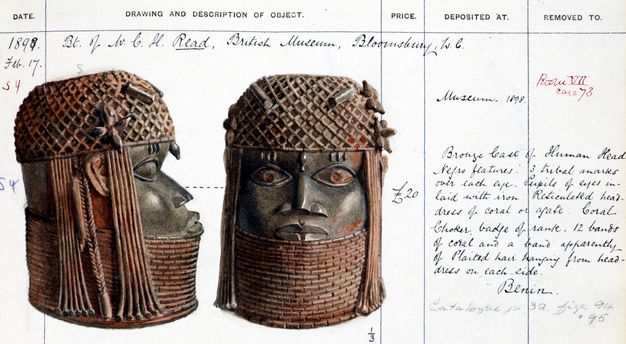 DATE.
DRAWING AND DESCRIPTION OF OBJECT.
PRICE.
DEPOSITED AT.
REMOVED TO.
1898.
Feb. 17.
Bt. of W. C. H. Read, British Museum, Bloomsbury, W.C.
S4
S
S4
£20
1/3
Museum. 1898
Room VII
case 73
Bronze Cast of Human Head
Negro features. 3 tribal marks
over each eye. Pupils of eyes in-
laid with iron. Reticulated head-
dress of coral or agate. Coral
Choker, badge of rank. 12 bands
of coral and a band apparently
of Plaited hair hanging from head-
dress on each side.
Benin.
Catalogue p 32. figs. 94
" 95